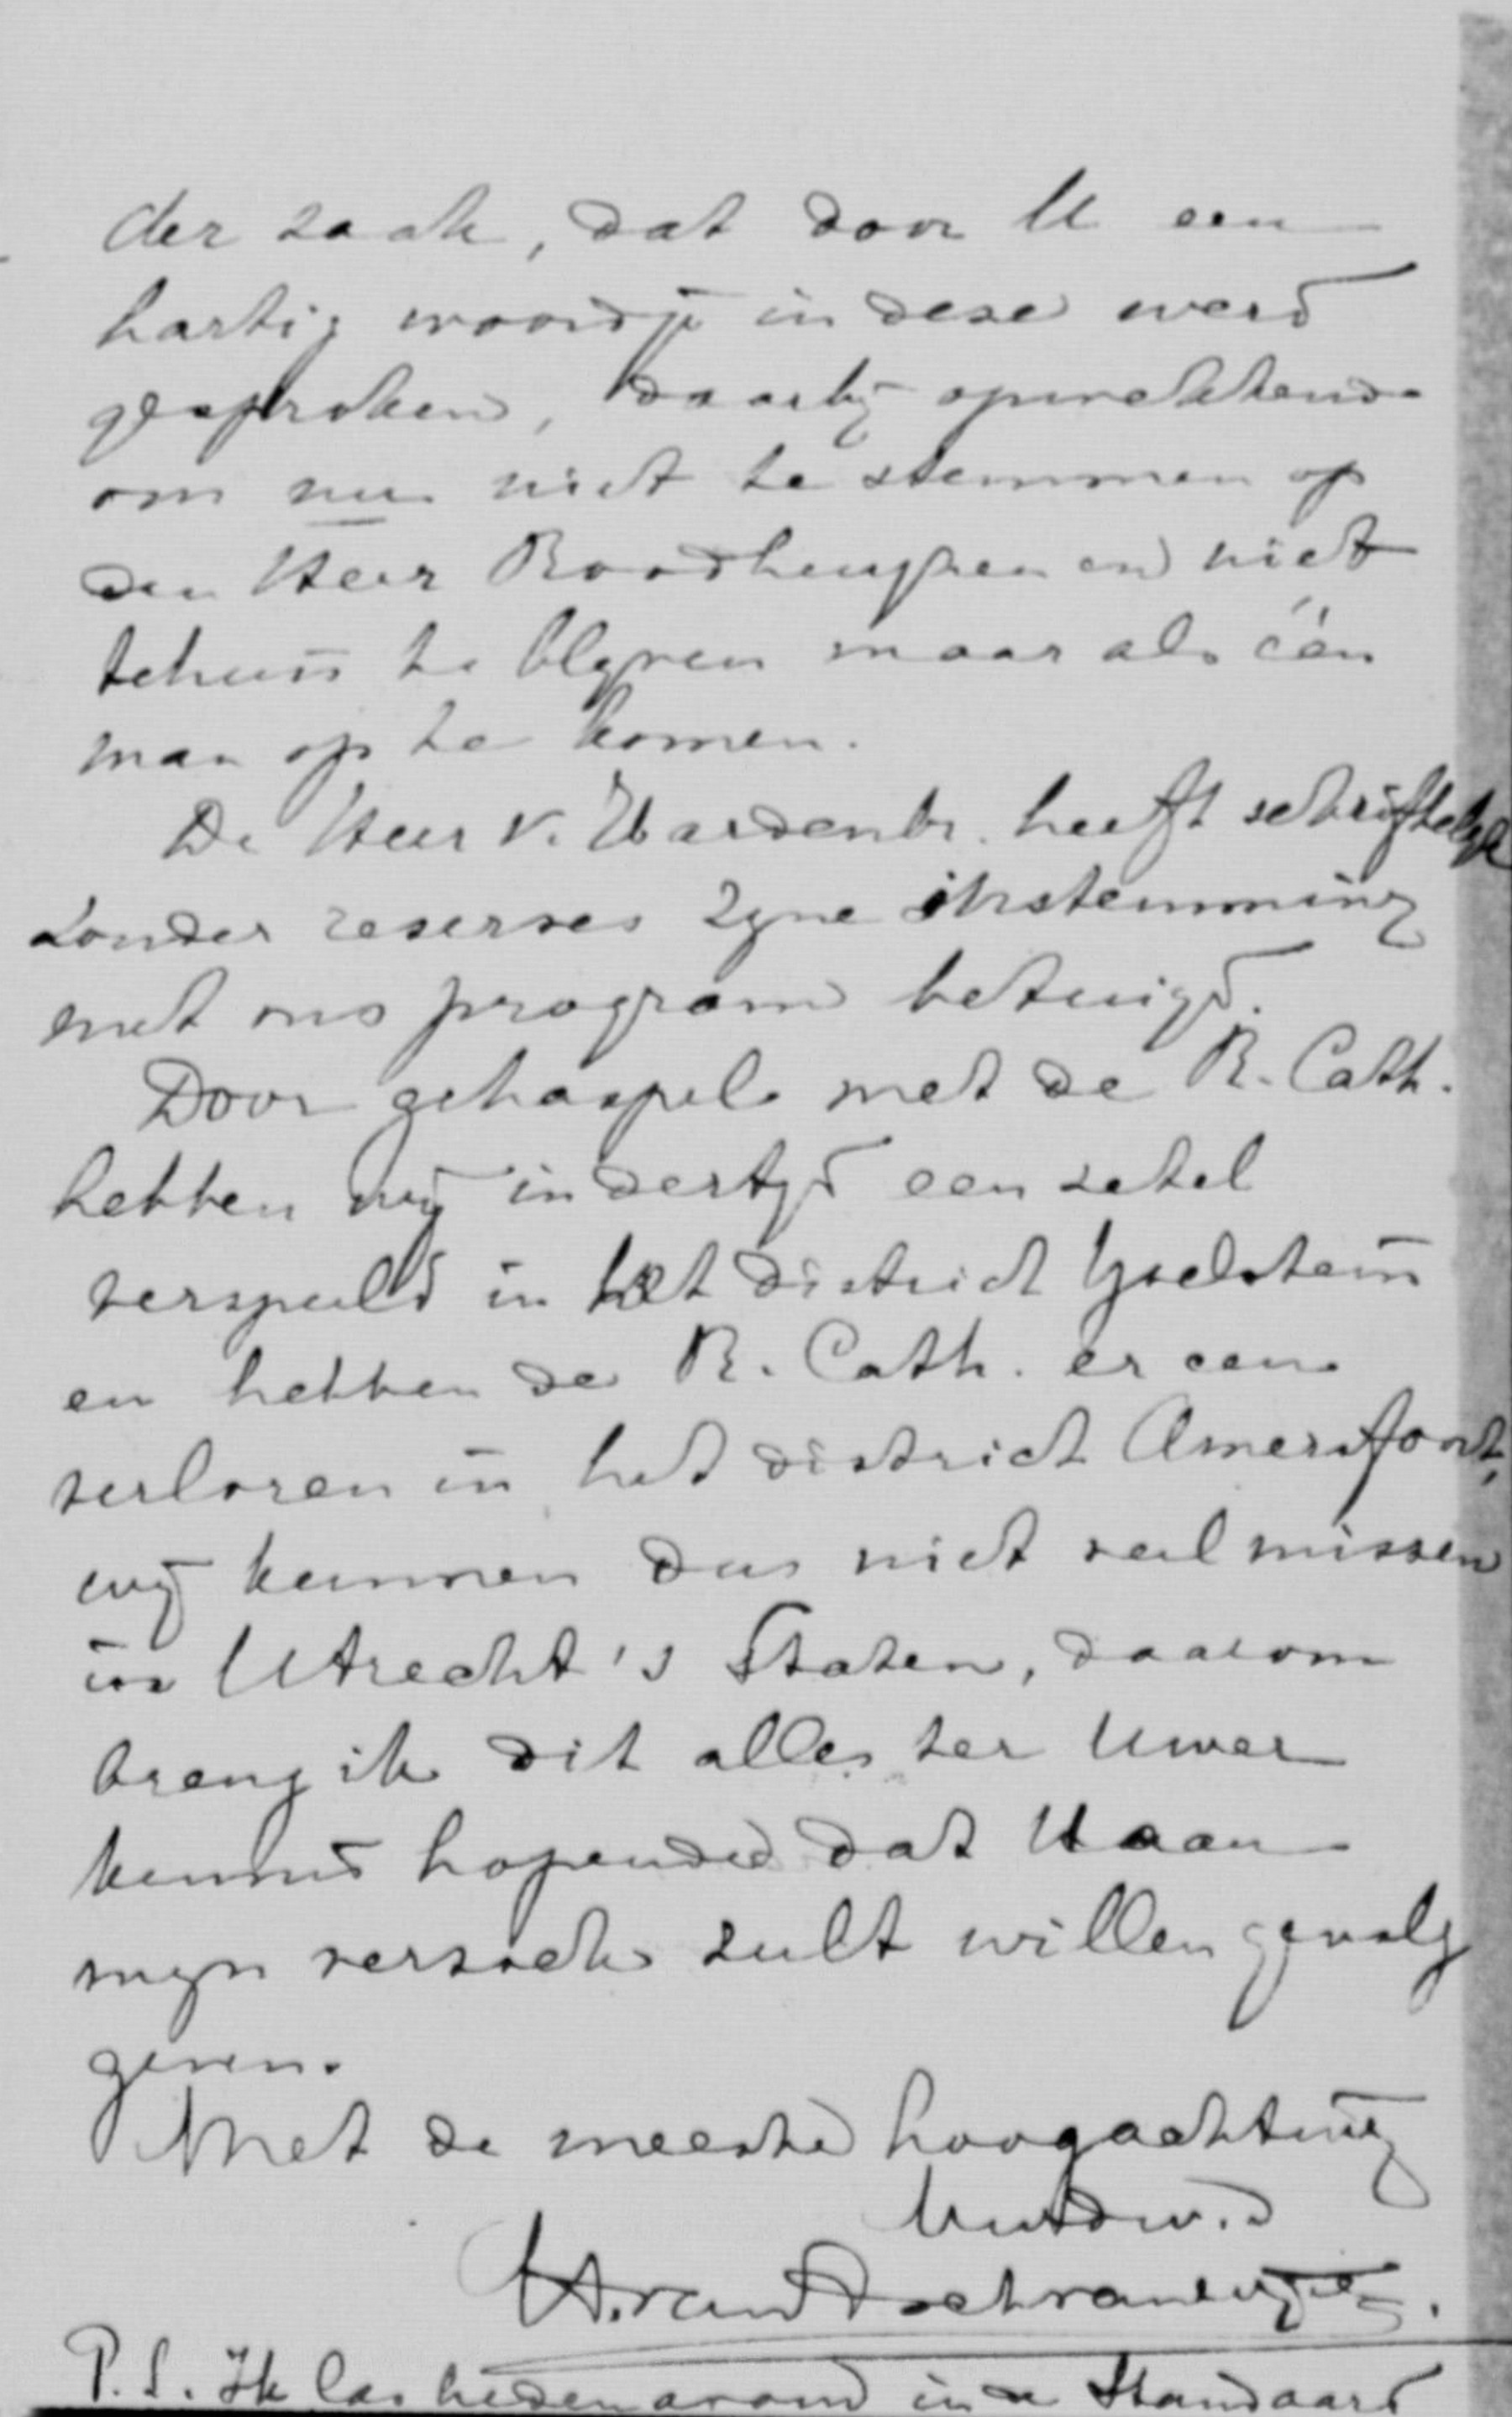 der zaak, dat door U een
hartig woordje in deze werd
gesproken, daarbij opwekkende
om nu niet te stemmen op
den Heer Roodhuyzen en niet
tehuis te blyven maar als één
man op te komen.
De Heer v. Wardenbr. heeft schriftelyk
zonder reserves zyne instemming
met ons program betuigd.
Door gehaspel met de R. Cath.
hebben wij indertyd een zetel
verspeeld in het district Yselstein
en hebben de R. Cath. er een
verloren in het district Amersfoort,
wij kunnen dus niet veel missen
in Utrecht's Staten, daarom
breng ik dit alles ter Uwer
kennis hopende dat U aan
myn verzoek zult willen gevolg
geven.
Met de meeste hoogachting
Uwdw.d
P.S. Ik las heden avond in de Standaard